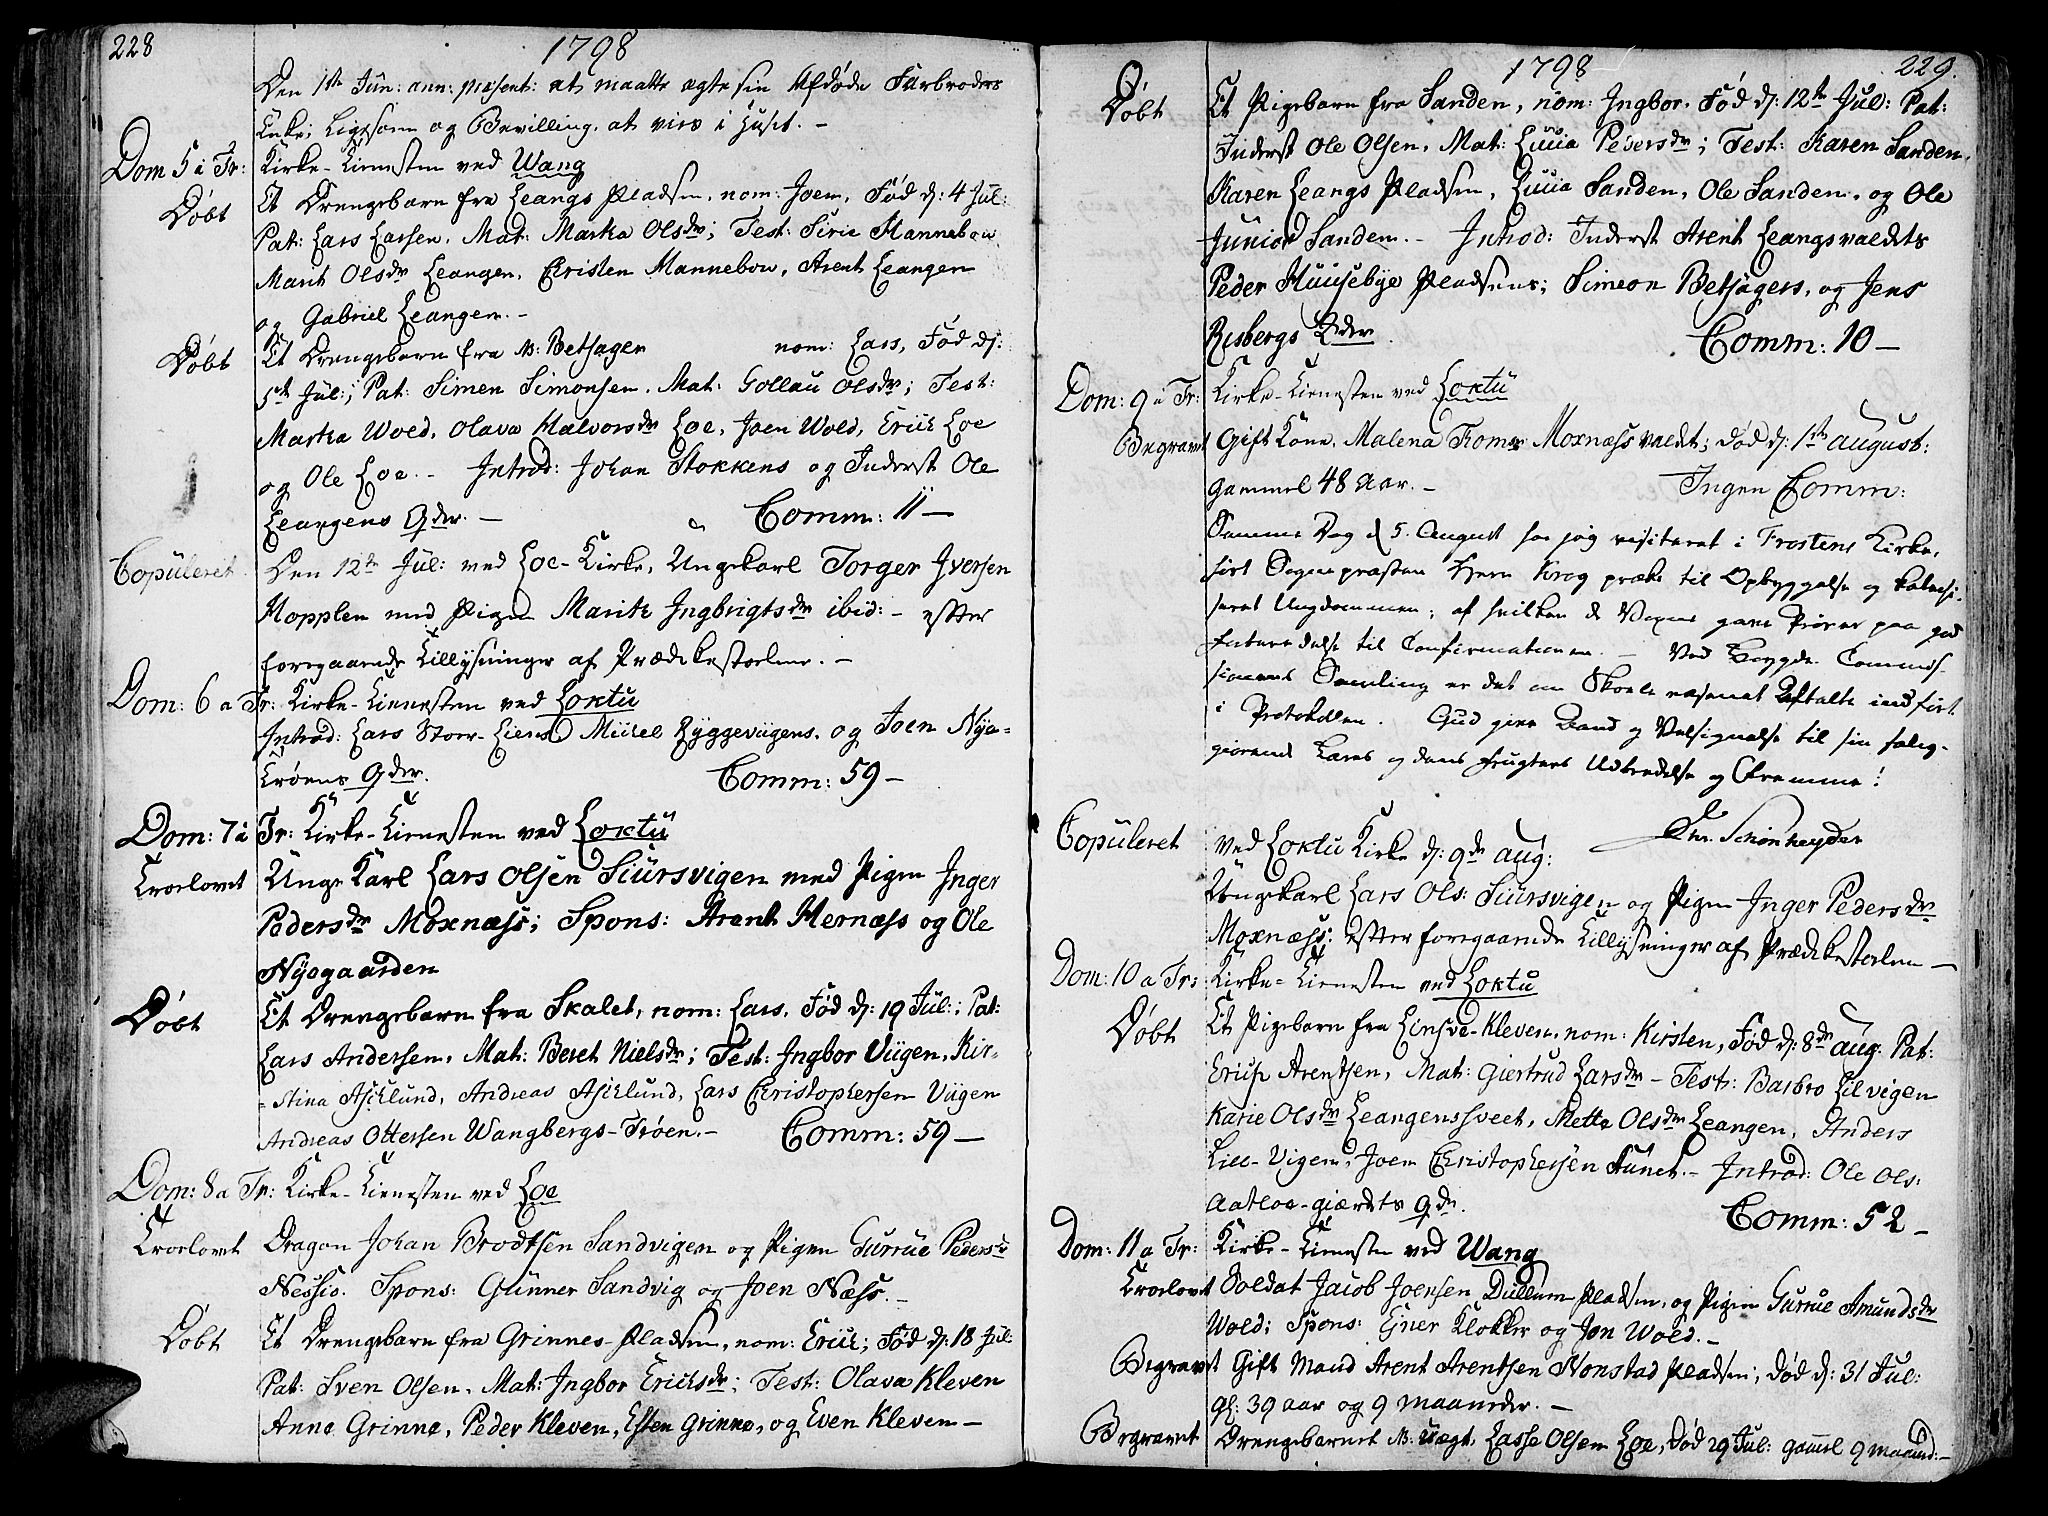 228
1798
Den 1ste Jun: ann: præsent: at maatte ægte sin Afdøde Farbroders
Enke; Ligesom og Bevilling, at vies i Huset. –
Dom 5 a Tr: Kirke-Tienesten ved Wang
Døbt Et Drengebarn fra Leangs Pladsen, nom: Joen, Fød d: 4 Jul:
Pat: Lars Larsen, Mat: Marka Olsdr; Test: Sirie Mannebou
Marit Olsdr Leangen, Christen Mannebou, Arent Leangen
og Gabriel Leangen. –
Døbt Et Drengebarn fra N: Betsager nom: Lars, Fød d:
5te Jul:; Pat: Simen Simonsen, Mat: Gollau Olsdr; Test:
Marka Wold, Olava Halvorsdr Loe, Joen Wold, Erick Loe
og Ole Loe. – Introd: Johan Stokkens og Inderst Ole
Leangens Qder. – Comm: 11 –
Copuleret Den 12te Jul: ved Loe-Kirke, Ungekarl Torger Iversen
Hopplen med Pigen Marith Ingbrigtsdr ibid: – efter
foregaaende Tillysninger af Prædikestoelene. –
Dom: 6 a Tr: Kirke-Tienesten ved Loxtu
Introd: Lars Storr-Liens, Mickel Ryggevigens, og Joen Nya-
Trøens Qder. Comm: 59 –
Dom: 7 a Tr: Kirke-Tienesten ved Loxtu
Troelovet Unge Karl Lars Olsen Siursvigen med Pigen Inger
Pedersdr Moxnæss; Spons: Arent Hernæss og Ole
Nysgaarden
Døbt Et Drengebarn fra Skalet, nom: Lars, Fød d: 19 Jul:; Pat:
Lars Andersen, Mat: Beret Nielsdr; Test: Ingbor Viigen, Kir-
-stina Asklund, Andreas Asklund, Lars Christophersen Viigen
Andreas Ottersen Wangbergs-Trøen. – Comm: 59 –
Dom: 8 a Tr: Kirke-Tienesten ved Loe
Troelovet Dragon Johan Brodtsen Sandvigen og Pigen Gurrue Pedersdr
Nessie. Spons: Gunner Sandvig og Joen Næss. –
Døbt Et Drengebarn fra Grinnes-Pladsen, nom: Erick; Fød d: 18 Jul:
Pat: Sven Olsen, Mat: Ingbor Ericksdr; Test: Olava Kleven
Anne Grinne, Peder Kleven, Esten Grinne, og Even Kleven –
1798
229.
Døbt Et Pigebarn fra Sanden, nom: Ingbor, Fød d: 12te Jul: Pat:
Inderst Ole Olsen, Mat: Lucia Pedersdr; Test: Karen Sanden,
Karen Leangs Pladsen, Lucia Sanden, Ole Sanden, og Ole
Junior Sanden. – Introd: Inderst Arent Leangsvaldets
Peder Huusebye Pladsens; Simeon Betsagers, og Jens
Risbergs Qder. Comm: 10 –
Dom: 9 a Tr: Kirke-Tienesten ved Loxtu
Begravet Gift Kone, Malena Moxnæssvaldt; død d: 1ste August:
gammel 48 Aar. – Ingen Comm:
Samme Dag d 5. August har jeg visiteret i Frostens Kirke,
hørt Sognepræsten Herr Krog præke til Opbyggelse og katechi-
seret Ungdommen; af hvilken de Voxne gave Prøver paa god
forberedelse til Confirmationen. – Ved Bøygde Commis-
sionens Samling er det om Skole væsenet Aftalte indført
i Protokollen. Gud give Aand og Velsignelse til sin salig-
giørende Læres og dens frugters Udbredelse og Fremme!
Chr. Schönheyder
Copuleret ved Loxtu Kirke d: 9de Aug:
Ungekarl Lars Ols: Siursvigen og Pigen Inger Pedersdr
Moxnæss: efter foregaaende Tillysninger af Prædikestoelene –
Dom: 10 a Tr: Kirke-Tienesten ved Loxtu
Døbt Et Pigebarn fra Kleven, nom: Kirsten, Fød d: 8de Aug: Pat:
Erich Arentsen, Mat: Giertrud Larsdr – Test: Barbro Lilvigen
Karie Olsdr Leangenssveet, Mette Olsdr Leangen, Anders
Lill-Vigen, Joen Christophersen Tunet. – Introd: Ole Ols:
Aatloe-giærdets Qdr. Comm: 52 –
Dom: 11 a Tr: Kirke-Tienesten ved Wang
Troelovet Soldat Jacob Joensen Dullum Pladsen, og Pigen Gurrue Amundsdr
Wold; Spons: Ejner Klokker og Jon Wold. –
Begravet Gift Mand Arent Arentsen Nonstad Pladsen; død d: 31 Jul:
gl: 39 aar og 9 maaneder. –
Begravet Drengebarnet N: Uægt. Lasse Olsen Loe, død 29 Jul: gamel 9 maaned: –